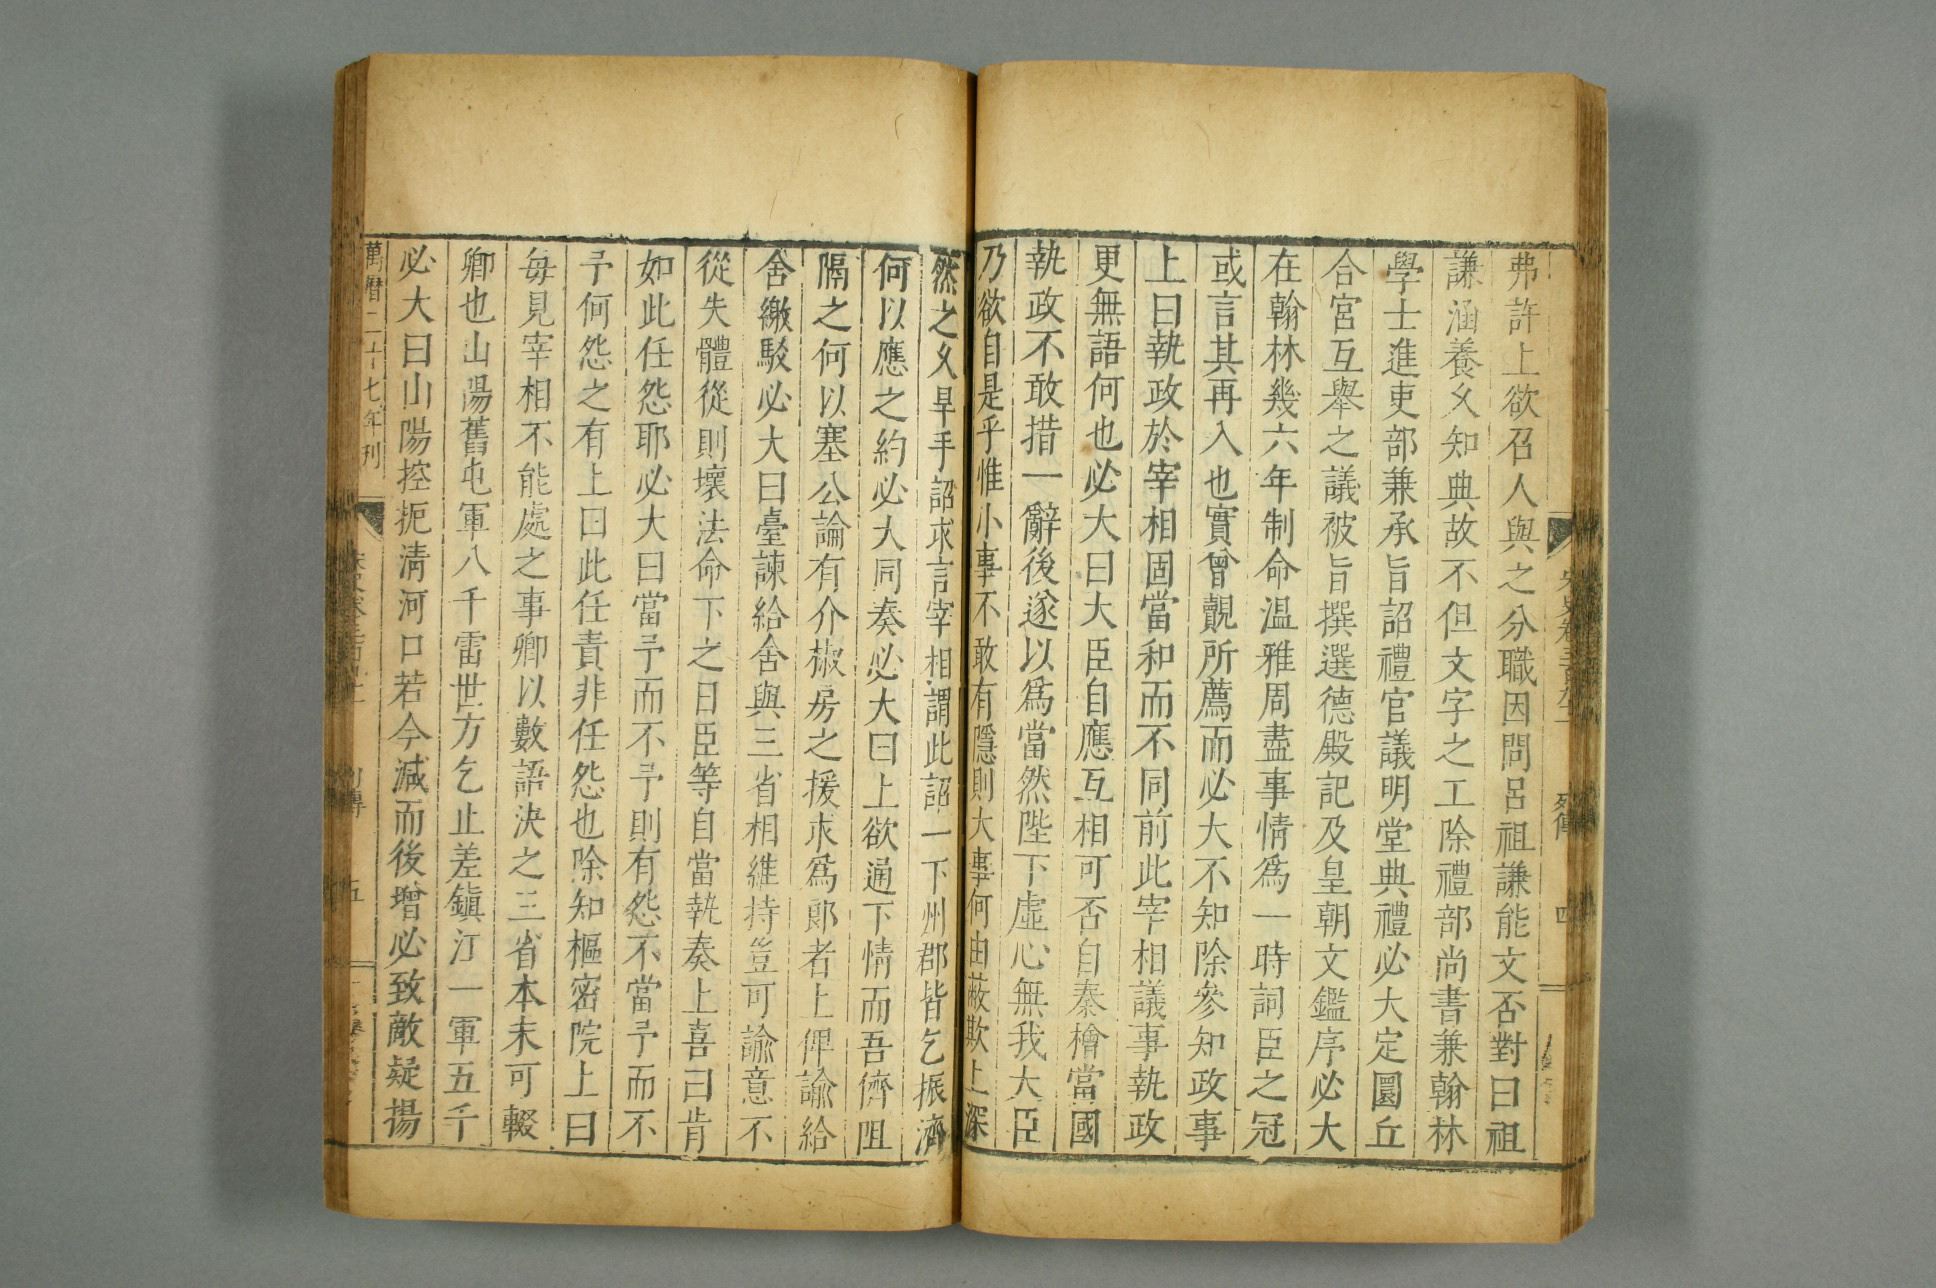 弗許上欲召人與之分職因問呂祖謙能文否對曰祖
謙涵養久知典故不但文字之工除禮部尚書兼翰林
學士進吏部兼承旨詔禮官議明堂典禮必大定圜丘
合宮互舉之議被旨撰選德殿記及皇朝文鑑序必大
在翰林幾六年制命温雅周盡事情爲一時詞臣之冠
或言其再入也實曾覿所薦而必大不知除參知政事
上曰執政於宰相固當和而不同前此宰相議事執政
更無語何也必大曰大臣自應互相可否自秦檜當國
執政不敢措一辭後遂以爲當然陛下虛心無我大臣
乃欲自是乎惟小事不敢有隱則大事何由蔽欺上深
然之久旱手詔求言宰相謂此詔一下州郡皆乞振濟
何以應之約必大同奏必大曰上欲通下情而吾儕阻
隔之何以塞公論有介椒房之援求爲郎者上俾諭給
舍繳駁必大曰臺諫給舍與三省相維持豈可諭意不
從失體從則壞法命下之日臣等自當執奏上喜曰肯
如此任怨耶必大曰當予而不予則有怨不當予而不
予何怨之有上曰此任責非任怨也除知樞密院上曰
每見宰相不能處之事卿以數語決之三省本未可輟
卿也山陽舊屯軍八千雷世方乞止差鎮江一軍五千
必大曰山陽控扼清河口若今減而後增必致敵疑揚
萬曆二十七年刊
宋史卷三百九十一
列傳
四
列傳
五